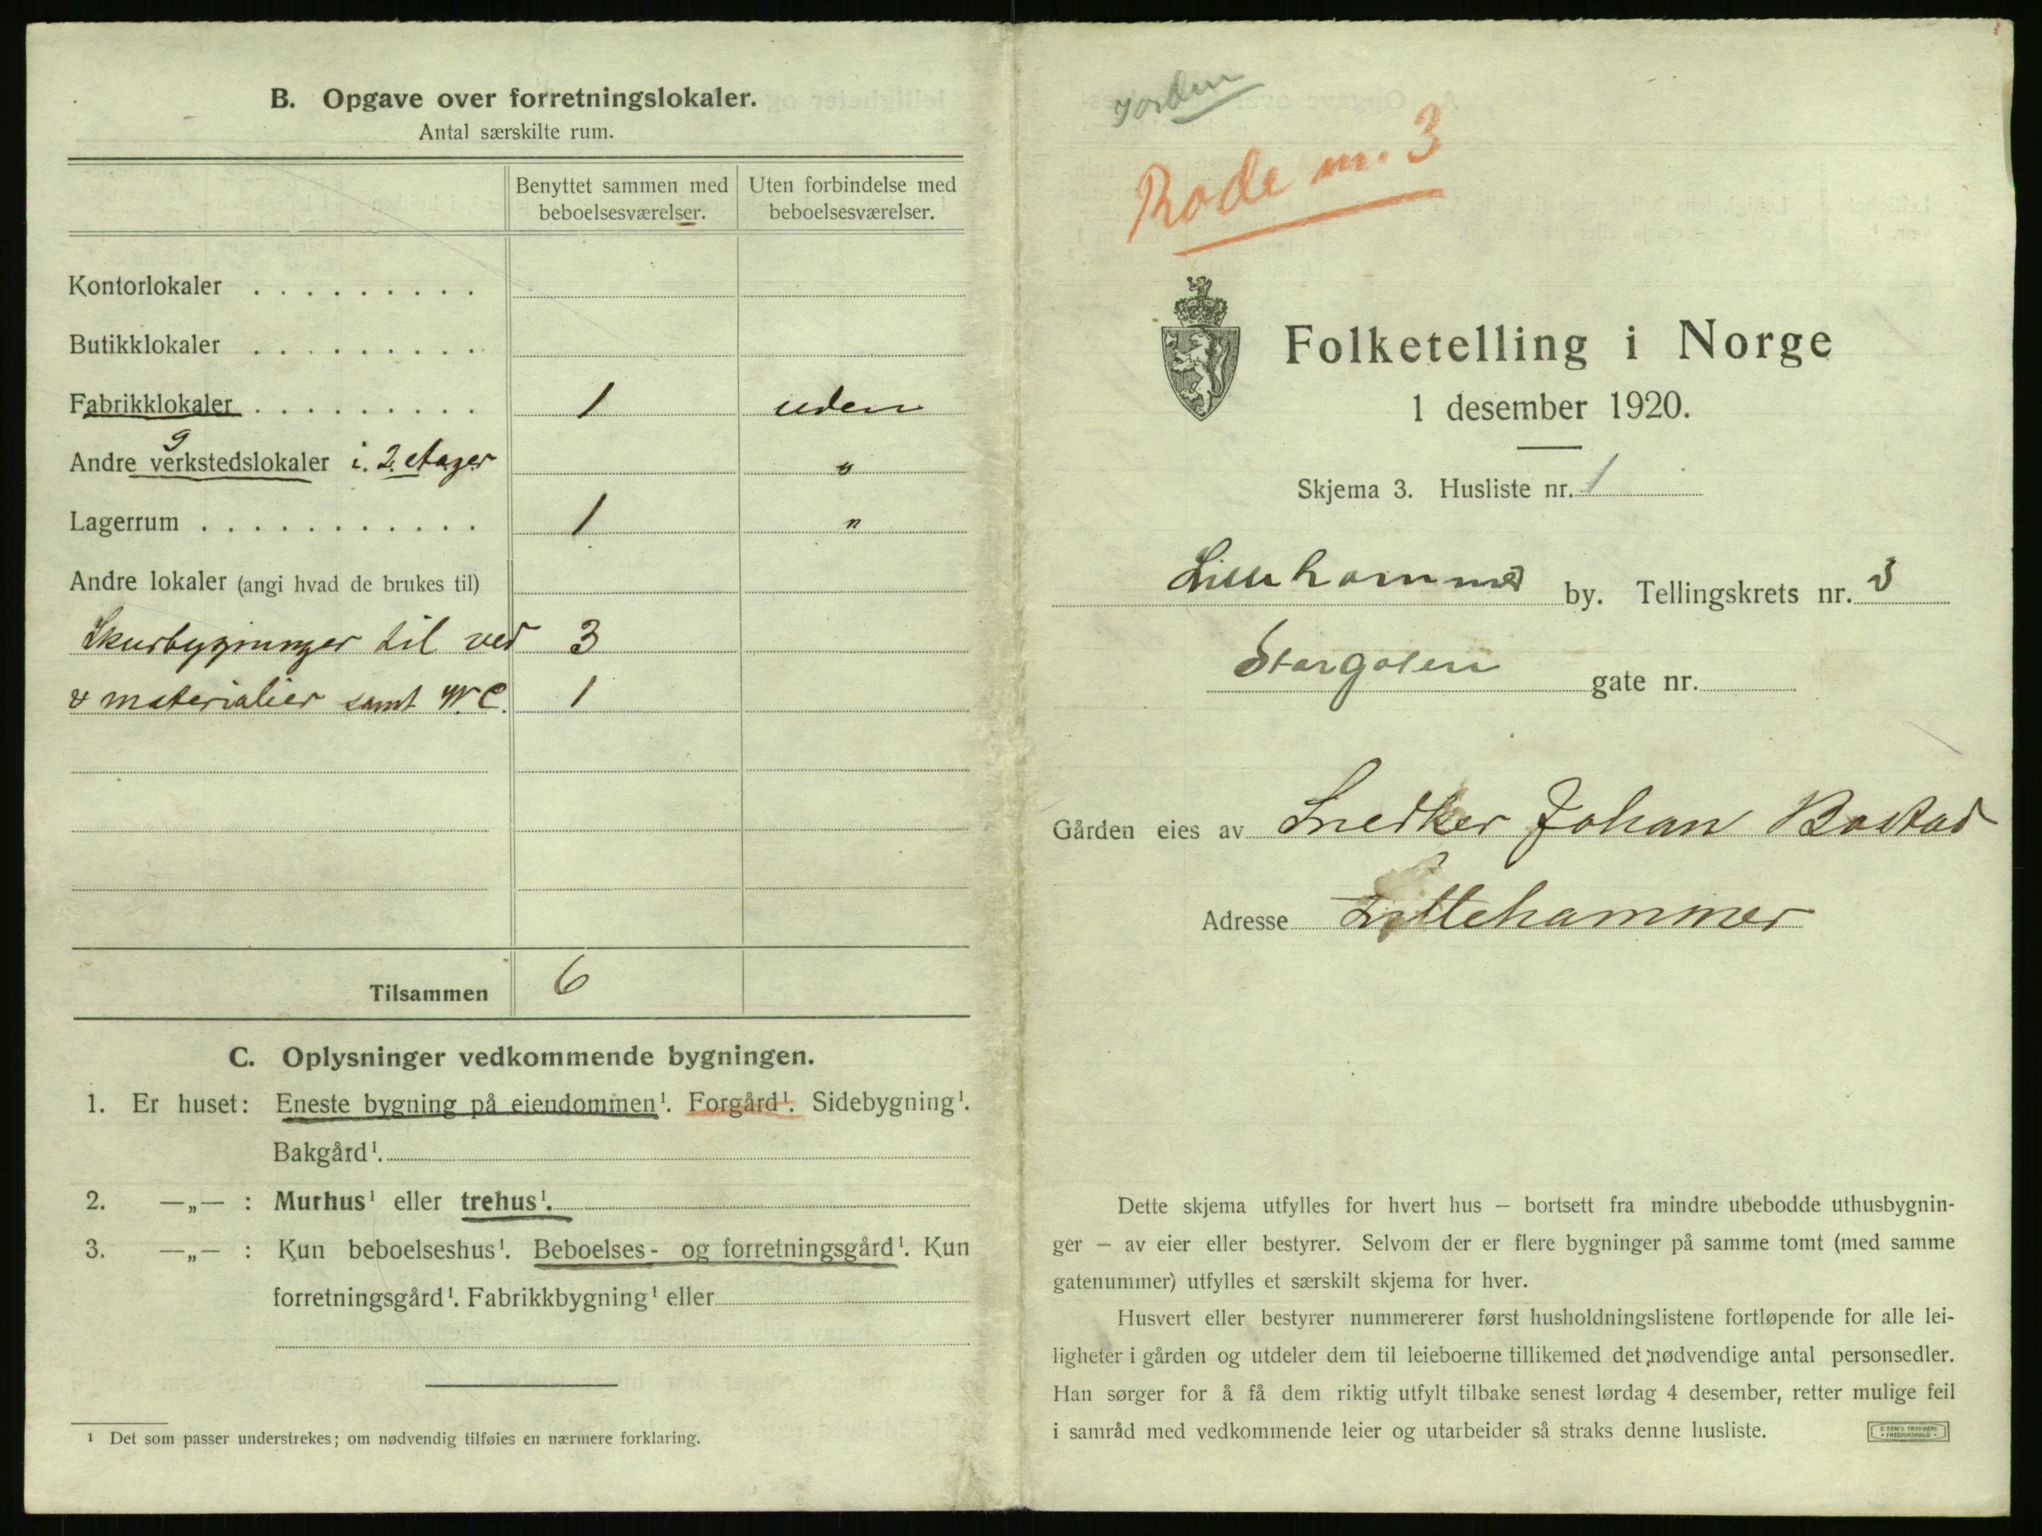 B. Opgave over forretningslokaler.
Antal særskilte rum.
Benyttet sammen med beboelsesværelser.
Uten forbindelse med beboelsesværelser.
Kontorlokaler
Butikklokaler
Fabrikklokaler 1 uden
Andre verkstedslokaler i. 2. etager "
Lagerrum 1 "
Andre lokaler (angi hvad de brukes til)
Skurbygninger til ved 3
& materialier samt W.C. 1
Tilsammen 6
C. Oplysninger vedkommende bygningen.
1. Er huset: Eneste bygning på eiendommen¹. Forgård¹. Sidebygning¹.
Bakgård¹.
2. —„— : Murhus¹ eller trehus¹.
3. —„— : Kun beboelseshus¹. Beboelses- og forretningsgård¹. Kun
forretningsgård¹. Fabrikkbygning¹ eller
¹ Det som passer understrekes; om nødvendig tilføies en nærmere forklaring.
Jorden
Rode nr. 3
Folketelling i Norge
1 desember 1920.
Skjema 3. Husliste nr. 1
Lillehammer by. Tellingskrets nr. 3
Storgaten gate nr.
Gården eies av Snedker Johan Bostad
Adresse Lillehammer
Dette skjema utfylles for hvert hus – bortsett fra mindre ubebodde uthusbygnin-
ger – av eier eller bestyrer. Selvom der er flere bygninger på samme tomt (med samme
gatenummer) utfylles et særskilt skjema for hver.
Husvert eller bestyrer nummererer først husholdningslistene fortløpende for alle lei-
ligheter i gården og utdeler dem til leieboerne tillikemed det nødvendige antal personsedler.
Han sørger for å få dem riktig utfylt tilbake senest lørdag 4 desember, retter mulige feil
i samråd med vedkommende leier og utarbeider så straks denne husliste.